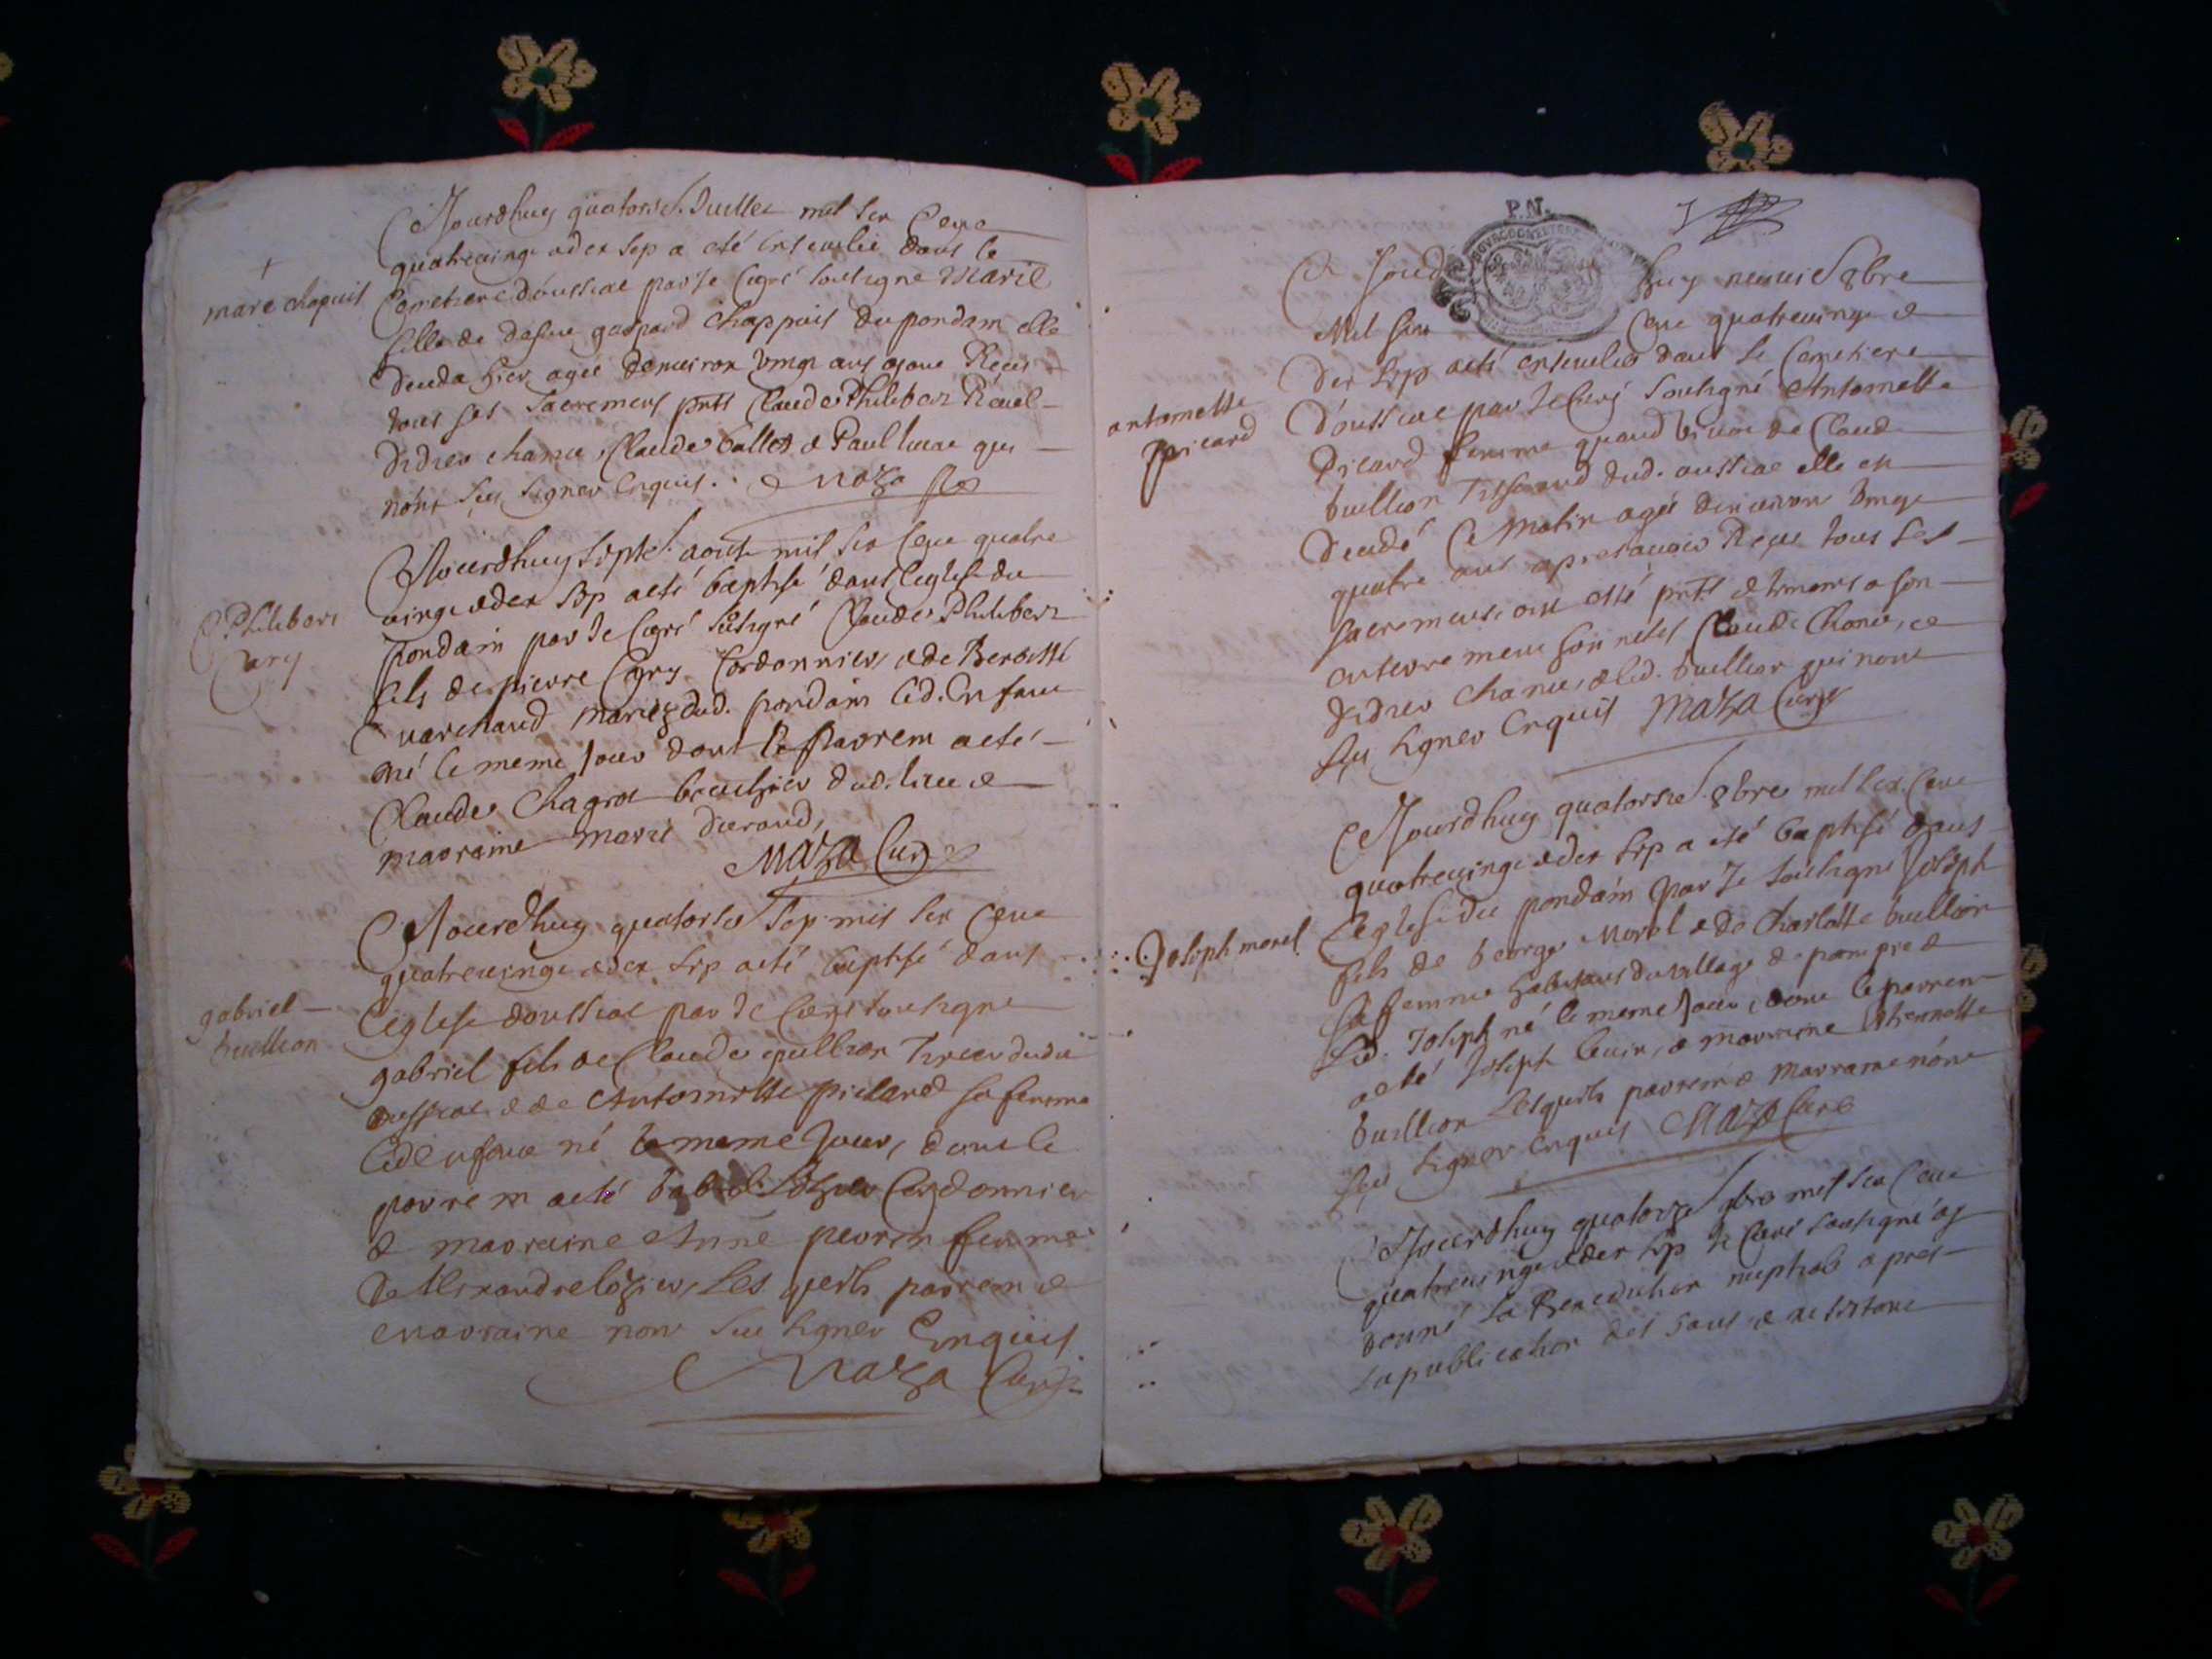 +
marie chapuis
Ajourdhuy quatorze Juillet mil six Cent
quatrevingt edix sep a eté ensevelie dans le
Cemetiere d'oussiat par Je Curé soussigné Marie
fille de defunt gaspard Chappuis du pondain elle
deceda hier agée denviron vingt ans ayant Receu
tous ses Sacremens pnts Claude Philibert
didier chanu Claude et Paul qui
nont sceu signer Enquis. Maza
Philibert
Cary
Ajourdhuy sept aoust mil six Cent quatre
vingt edix sep a eté baptisé dans leglise du
pondain par Je Curé soussigné Claude Philibert
fils de pierre Cary Cordonnier e de Benoitte
marchand mariez dud. pondain led. Enfant
né le meme jour dont le parrein a eté
Claude Chagrot dud. lieu e
marraine marie durand,
Maza Curé
gabriel
buellion
Ajourdhuy quatorse sep. mil six Cent
quatrevingt edix sep a eté baptisé dans
leglise doussiat par Je Curé soussigné
gabriel fils de Claude buellion
oussiat e de Antoinette picard sa femme
led enfant né le meme jour, dont le
parrein a eté Cordonnier
e marraine Anne perrin femme
de Alexandre lozier, Lesquels parrein e
marraine nont sceu signer Enquis
Maza Curé
P.N.
antoinette
picard
Ajourdhuy neuvie 8bre
Mil six Cent quatrevingt e
dix sep a eté ensevelie dans le Cemetiere
D'oussiat par Je Curé soussigné Antoinette
Picard femme quand vivoit de Claude
buellion Tisserand dud. oussiat elle est
decedé Ce Matin agée denviron vingt
quatre ans apres avoir Reçeu tous ses
sacremens ont esté pnts e temoins a son
enterrement honnetes Claude Chanu, e
didier Chanu, e led. buellion qui nont
sçu signer Enquis Maza Curé
Joseph morel
Ajourdhuy quatorse 8bre mil six Cent
quatrevingt edix sep a eté baptisé dans
leglise du pondain par Je soussigné Joseph
fils de george Morel e de Charlotte buellion
sa femme habitans du village de e
led. Joseph né le meme jour, dont le parrein
a eté Joseph, e marraine
buellion Lesquels parrein e marraine nont
sçu signer Enquis Maza Curé
Ajourdhuy quatorze 9bre mil six Cent
quatrevingt edix sep Je Curé soussigné ay
donné la Benediction nuptiale apres
la publication des bans e